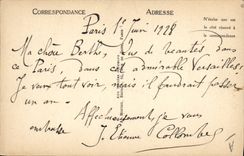 CORRESPONDANCE
ADRESSE
Paris 1er Juin 1928
Ma chère Berthe, Que de beautés, dans
ce Paris, dans cet admirable Versailles!
Je veux tout voir, mais il faudrait passer
un an.
Affectueusement je vous
embrasse
J. Etienne
Collombe
N'écrire que sur
le côté réservé à
la correspondance